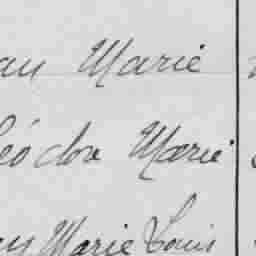 an Marie
éodore Marie
Marie Louis